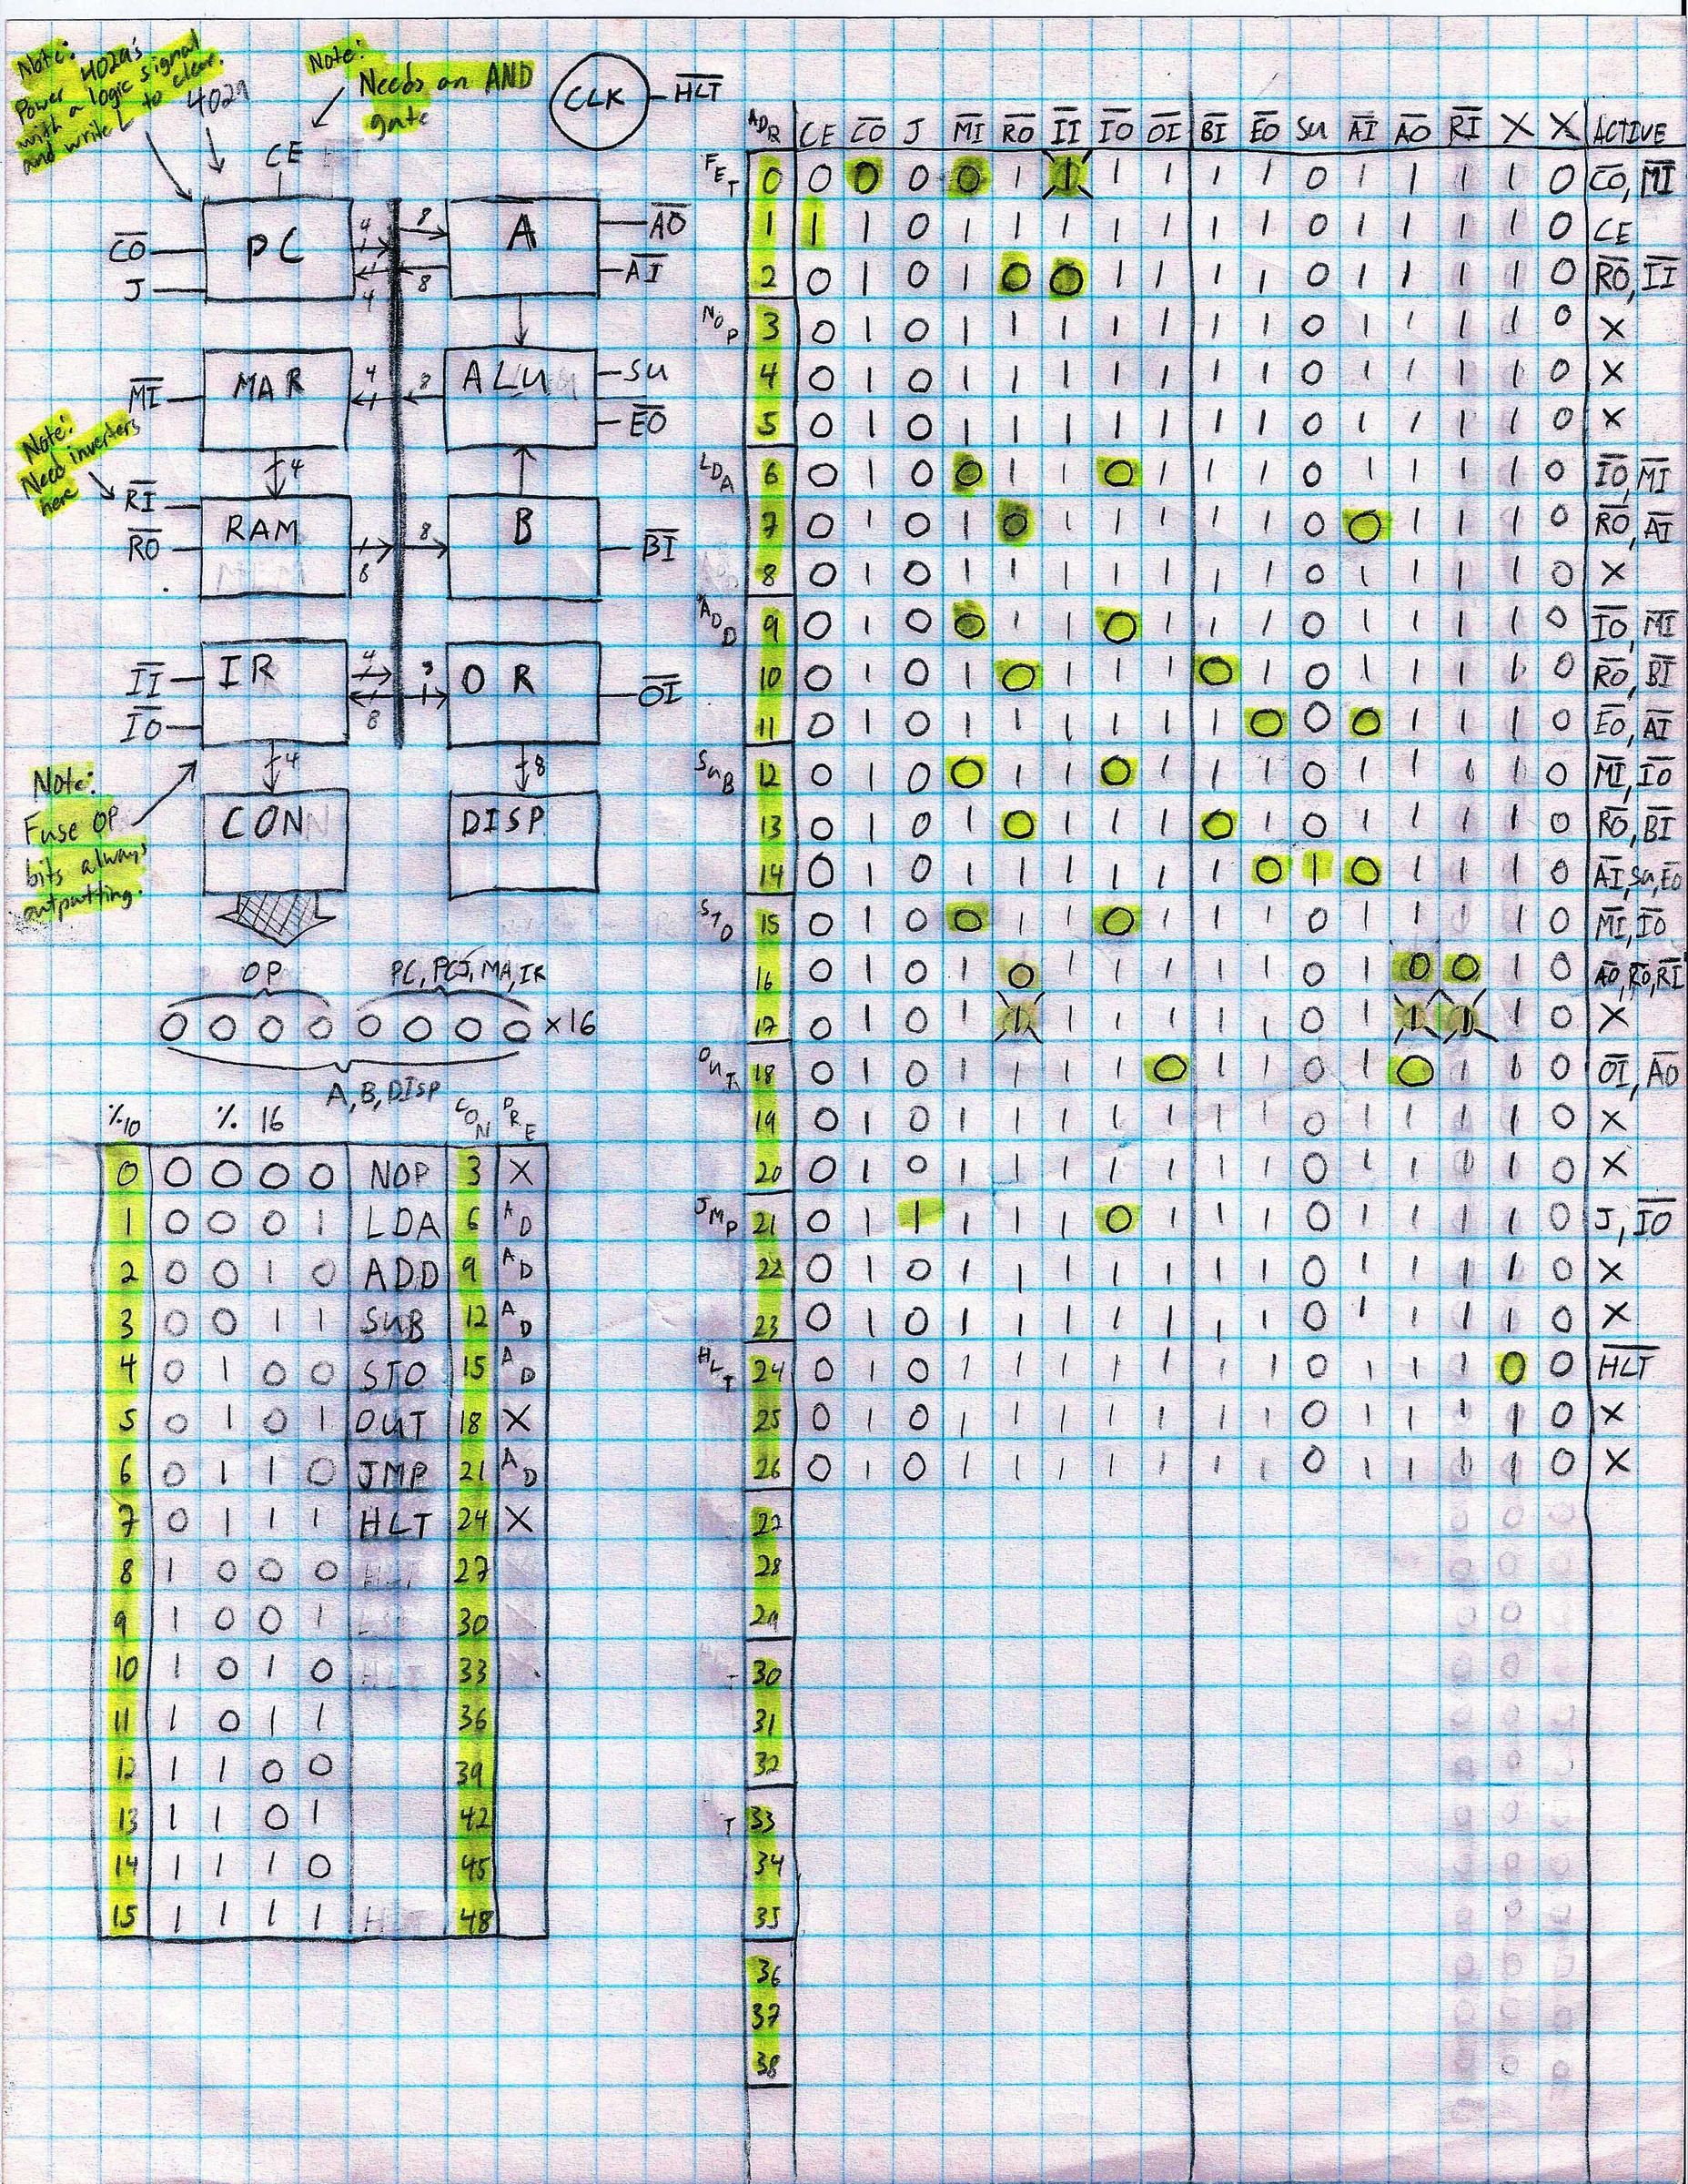 Note:
Power 4029's
with a logic signal
and write L to clear.
4029
Note:
Needs an AND
gate
CLK H̅L̅T̅
CE
C̅O̅
J
PC
4
4
8
8
A
A̅O̅
A̅I̅
M̅I̅
MAR
4
8
ALU
SU
E̅O̅
Note:
Need inverters
here
4
R̅I̅
R̅O̅
RAM
8
8
B
B̅I̅
I̅I̅
I̅O̅
IR
4
8
OR
O̅I̅
Note:
Fuse OP
bits always
outputting.
4
8
CON
DISP
OP PC, PCJ, MA, IR
0 0 0 0 0 0 0 0 x16
A, B, DISP
%10 % 16 CON PRE
0 0 0 0 0 NOP 3 X
1 0 0 0 1 LDA 6 AD
2 0 0 1 0 ADD 9 AD
3 0 0 1 1 SUB 12 AD
4 0 1 0 0 STO 15 AD
5 0 1 0 1 OUT 18 X
6 0 1 1 0 JMP 21 AD
7 0 1 1 1 HLT 24 X
8 1 0 0 0 27
9 1 0 0 1 30
10 1 0 1 0 33
11 1 0 1 1 36
12 1 1 0 0 39
13 1 1 0 1 42
14 1 1 1 0 45
15 1 1 1 1 HLT 48
ADR CE C̅O̅ J M̅I̅ R̅O̅ I̅I̅ I̅O̅ O̅I̅ B̅I̅ E̅O̅ SU A̅I̅ A̅O̅ R̅I̅ X X ACTIVE
FET 0 0 0 0 0 1 1 1 1 1 1 0 1 1 1 1 0 C̅O̅, M̅I̅
1 1 1 0 1 1 1 1 1 1 1 0 1 1 1 1 0 CE
2 0 1 0 1 0 0 1 1 1 1 0 1 1 1 1 0 R̅O̅, I̅I̅
NOP 3 0 1 0 1 1 1 1 1 1 1 0 1 1 1 1 0 X
4 0 1 0 1 1 1 1 1 1 1 0 1 1 1 1 0 X
5 0 1 0 1 1 1 1 1 1 1 0 1 1 1 1 0 X
LDA 6 0 1 0 0 1 1 0 1 1 1 0 1 1 1 1 0 I̅O̅, M̅I̅
7 0 1 0 1 0 1 1 1 1 1 0 0 1 1 1 0 R̅O̅, A̅I̅
8 0 1 0 1 1 1 1 1 1 1 0 1 1 1 1 0 X
ADD 9 0 1 0 0 1 1 0 1 1 1 0 1 1 1 1 0 I̅O̅, M̅I̅
10 0 1 0 1 0 1 1 1 0 1 0 1 1 1 1 0 R̅O̅, B̅I̅
11 0 1 0 1 1 1 1 1 1 0 0 0 1 1 1 0 E̅O̅, A̅I̅
SUB 12 0 1 0 0 1 1 0 1 1 1 0 1 1 1 1 0 M̅I̅, I̅O̅
13 0 1 0 1 0 1 1 1 0 1 0 1 1 1 1 0 R̅O̅, B̅I̅
14 0 1 0 1 1 1 1 1 1 0 1 0 1 1 1 0 A̅I̅, SU, E̅O̅
STO 15 0 1 0 0 1 1 0 1 1 1 0 1 1 1 1 0 M̅I̅, I̅O̅
16 0 1 0 1 0 1 1 1 1 1 0 1 0 0 1 0 A̅O̅, R̅O̅, R̅I̅
17 0 1 0 1 1 1 1 1 1 1 0 1 1 1 1 0 X
OUT 18 0 1 0 1 1 1 1 0 1 1 0 1 0 1 1 0 O̅I̅, A̅O̅
19 0 1 0 1 1 1 1 1 1 1 0 1 1 1 1 0 X
20 0 1 0 1 1 1 1 1 1 1 0 1 1 1 1 0 X
JMP 21 0 1 1 1 1 1 0 1 1 1 0 1 1 1 1 0 J, I̅O̅
22 0 1 0 1 1 1 1 1 1 1 0 1 1 1 1 0 X
23 0 1 0 1 1 1 1 1 1 1 0 1 1 1 1 0 X
HLT 24 0 1 0 1 1 1 1 1 1 1 0 1 1 1 0 0 H̅L̅T̅
25 0 1 0 1 1 1 1 1 1 1 0 1 1 1 1 0 X
26 0 1 0 1 1 1 1 1 1 1 0 1 1 1 1 0 X
27
28
29
30
31
32
33
34
35
36
37
38